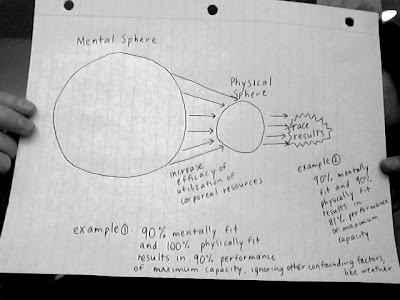 Mental Sphere
Physical
Sphere
race
results
increase
efficacy of
utilization of
corporeal resources
example ①: 90% mentally fit
and 100% physically fit
results in 90% performance
of maximum capacity, ignoring other confounding factors,
like weather.
example ②
90% mentally
fit and 90%
physically fit
results in
81% performance
of maximum
capacity